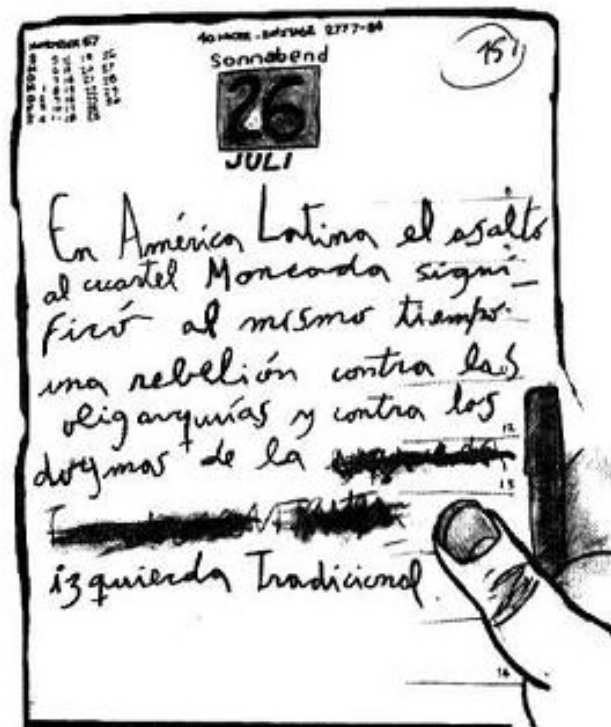 Sonnabend
26
JULI
En América Latina el asalto
al cuartel Moncada signi-
ficó al mismo tiempo
una rebelión contra las
oligarquías y contra los
dogmas de la
izquierda Tradicional
12
13
14